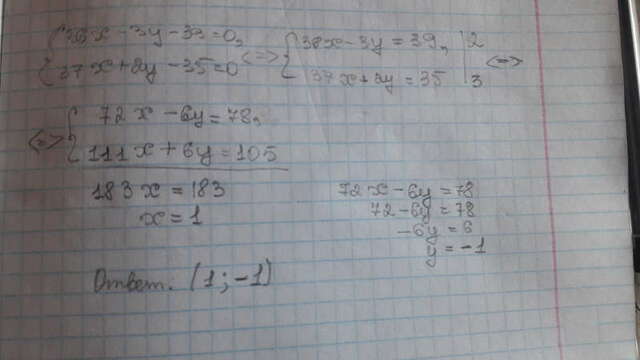 36x - 3y - 39 = 0,
37x + 2y - 35 = 0
<=>
36x - 3y = 39, | 2
37x + 2y = 35 | 3
<=>
<=> 72x - 6y = 78,
111x + 6y = 105
183x = 183
x = 1
72x - 6y = 78
72 - 6y = 78
-6y = 6
y = -1
Ответ. (1; -1)